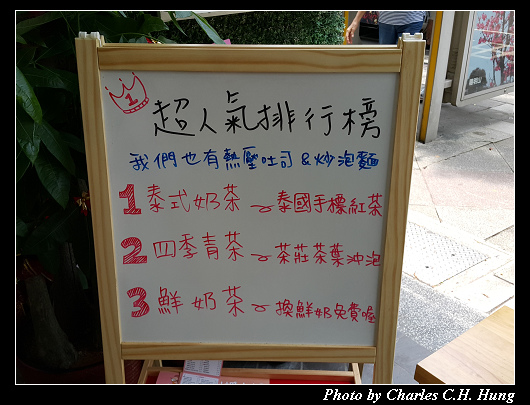 1
超人氣排行榜
我們也有熱壓吐司&炒泡麵
1 泰式奶茶～泰國手標紅茶
2 四季青茶～茶莊茶葉沖泡
3 鮮奶茶～換鮮奶免費喔
Photo by Charles C.H. Hung